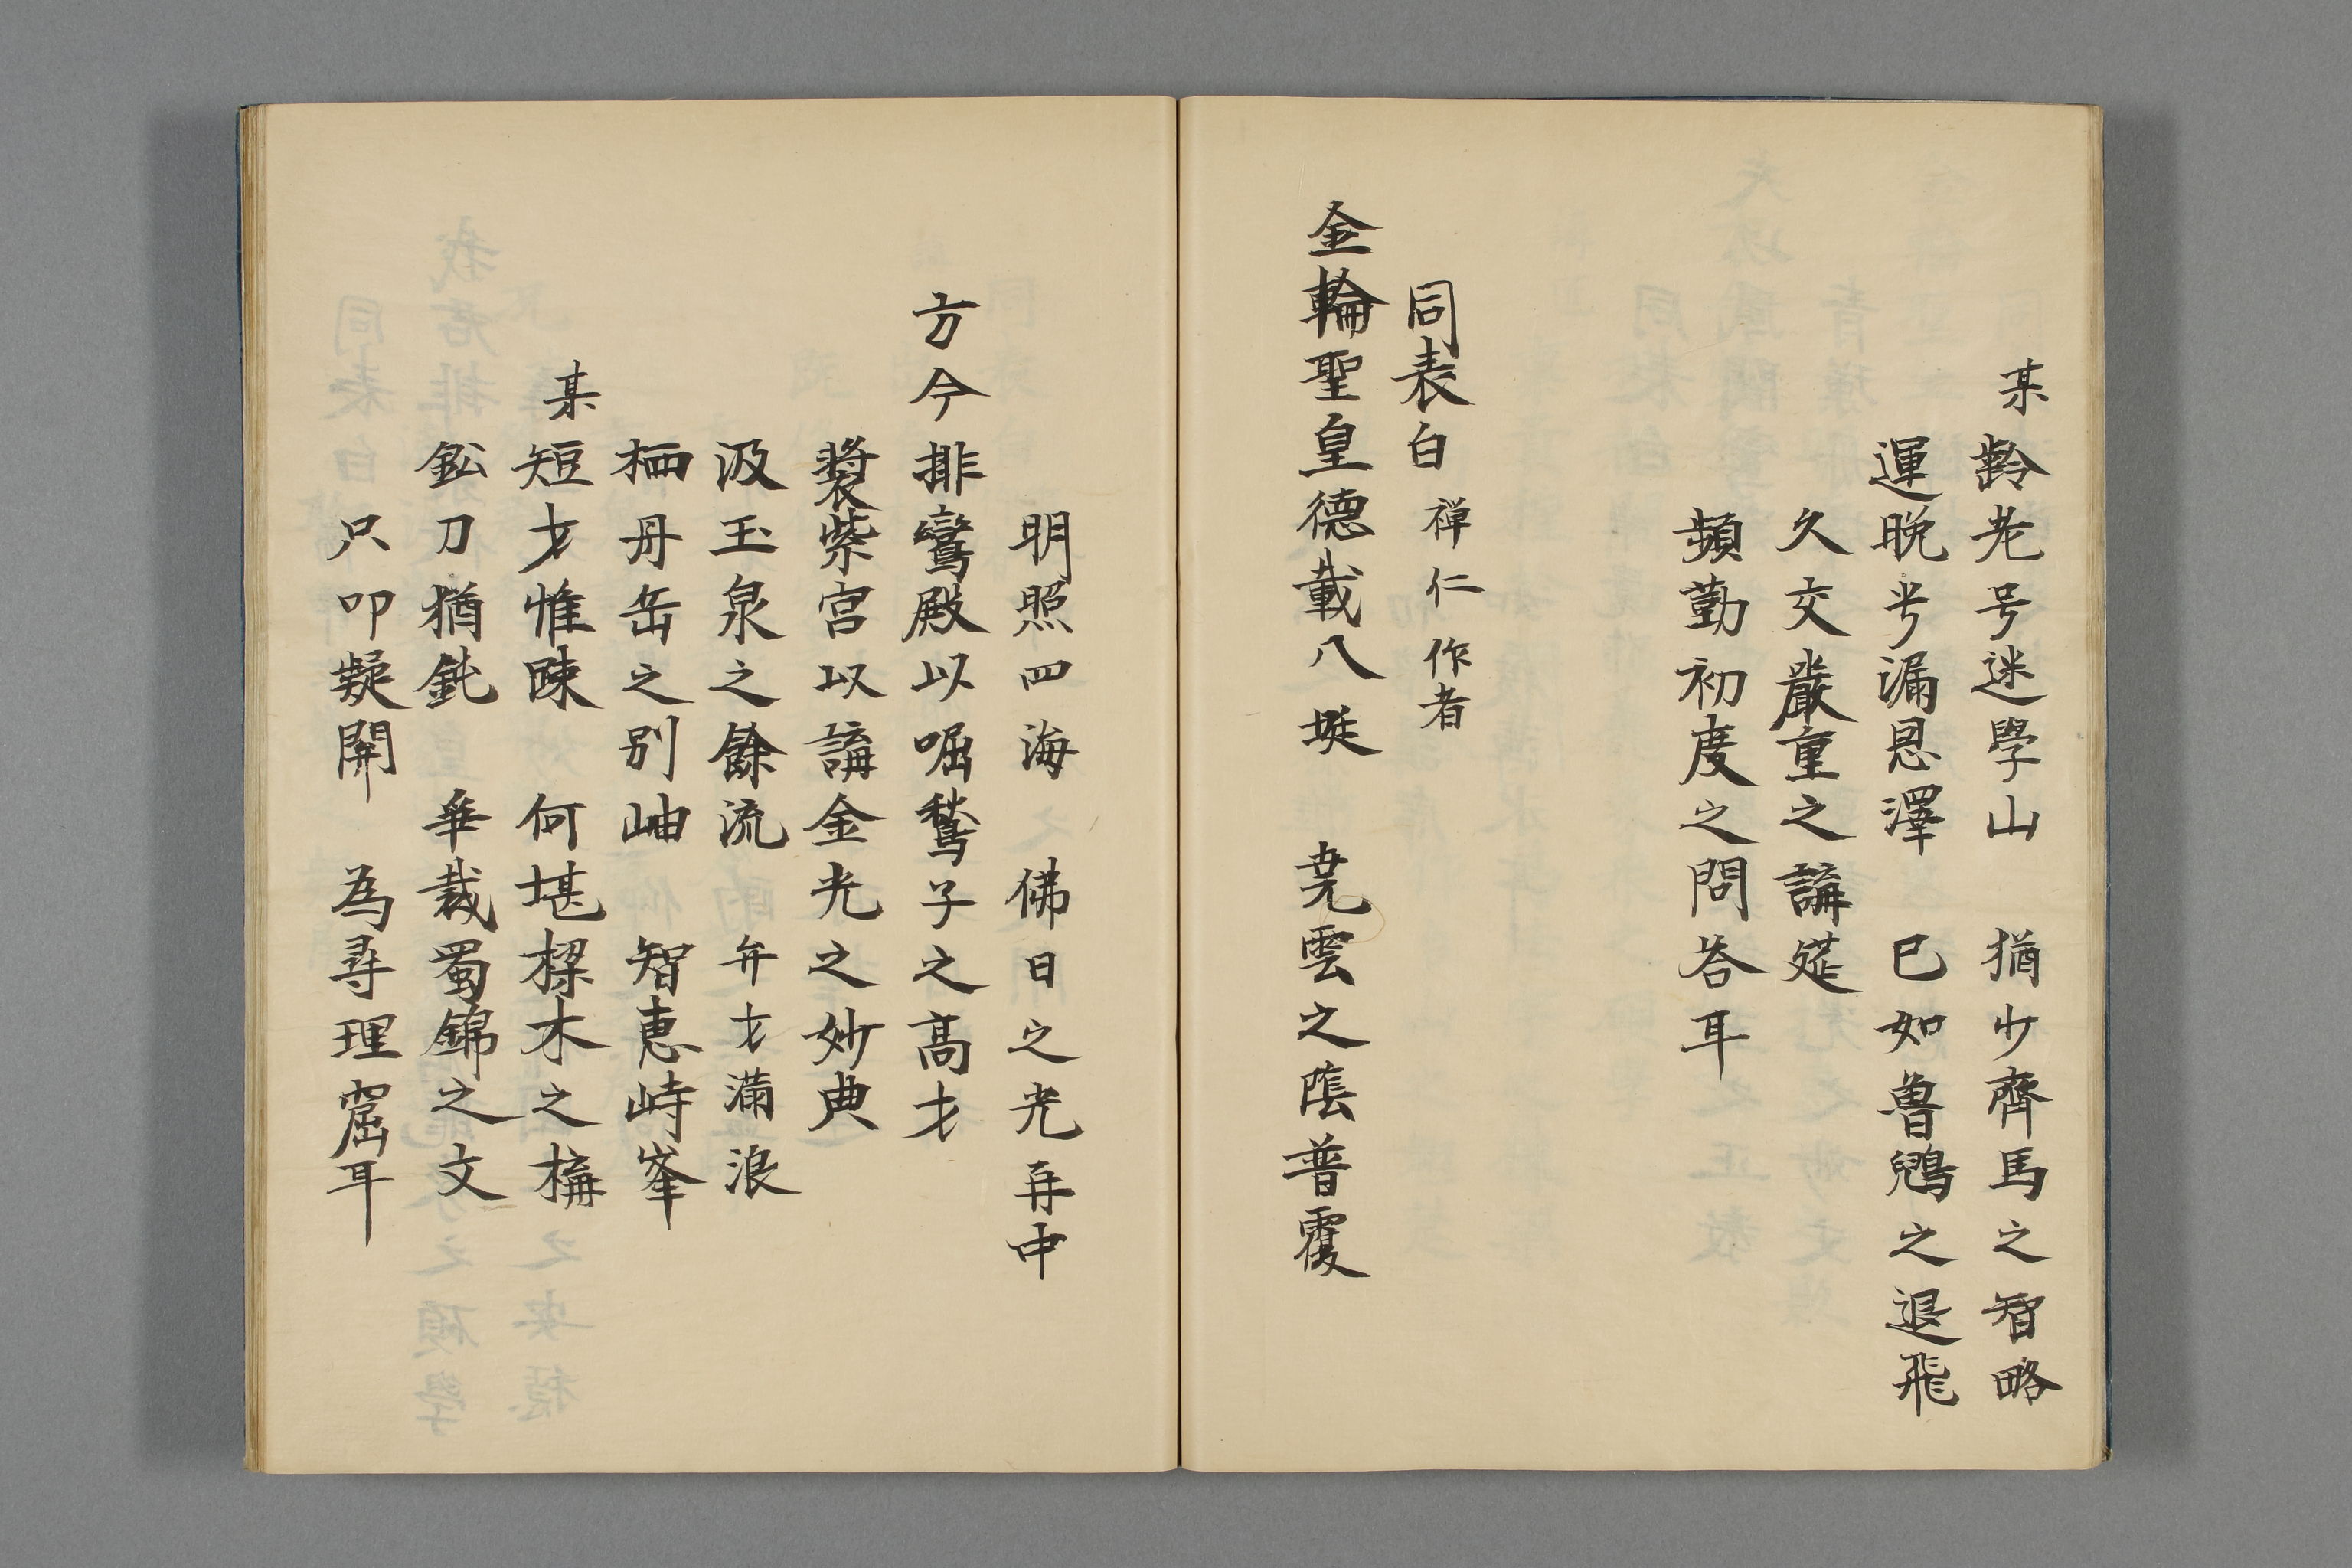 某齡老号迷學山　猶少齊馬之智略
運晩兮漏恩澤　已如魯鶂之退飛
久交嚴重之講筵
頻勤初度之問答耳
同表白 禅仁 作者
金輪聖皇德載八埏　堯雲之蔭普覆
明照四海　佛日之光再中
方今排鸞殿以啒鶖子之高才
裝紫宮以講金光之妙典
汲玉泉之餘流　弁才滿浪
栖丹岳之別岫　智恵峙峯
某短才惟踈　何堪樑木之構
鈆刀猶鈍　寧裁蜀錦之文
只叩疑開　為尋理窟耳